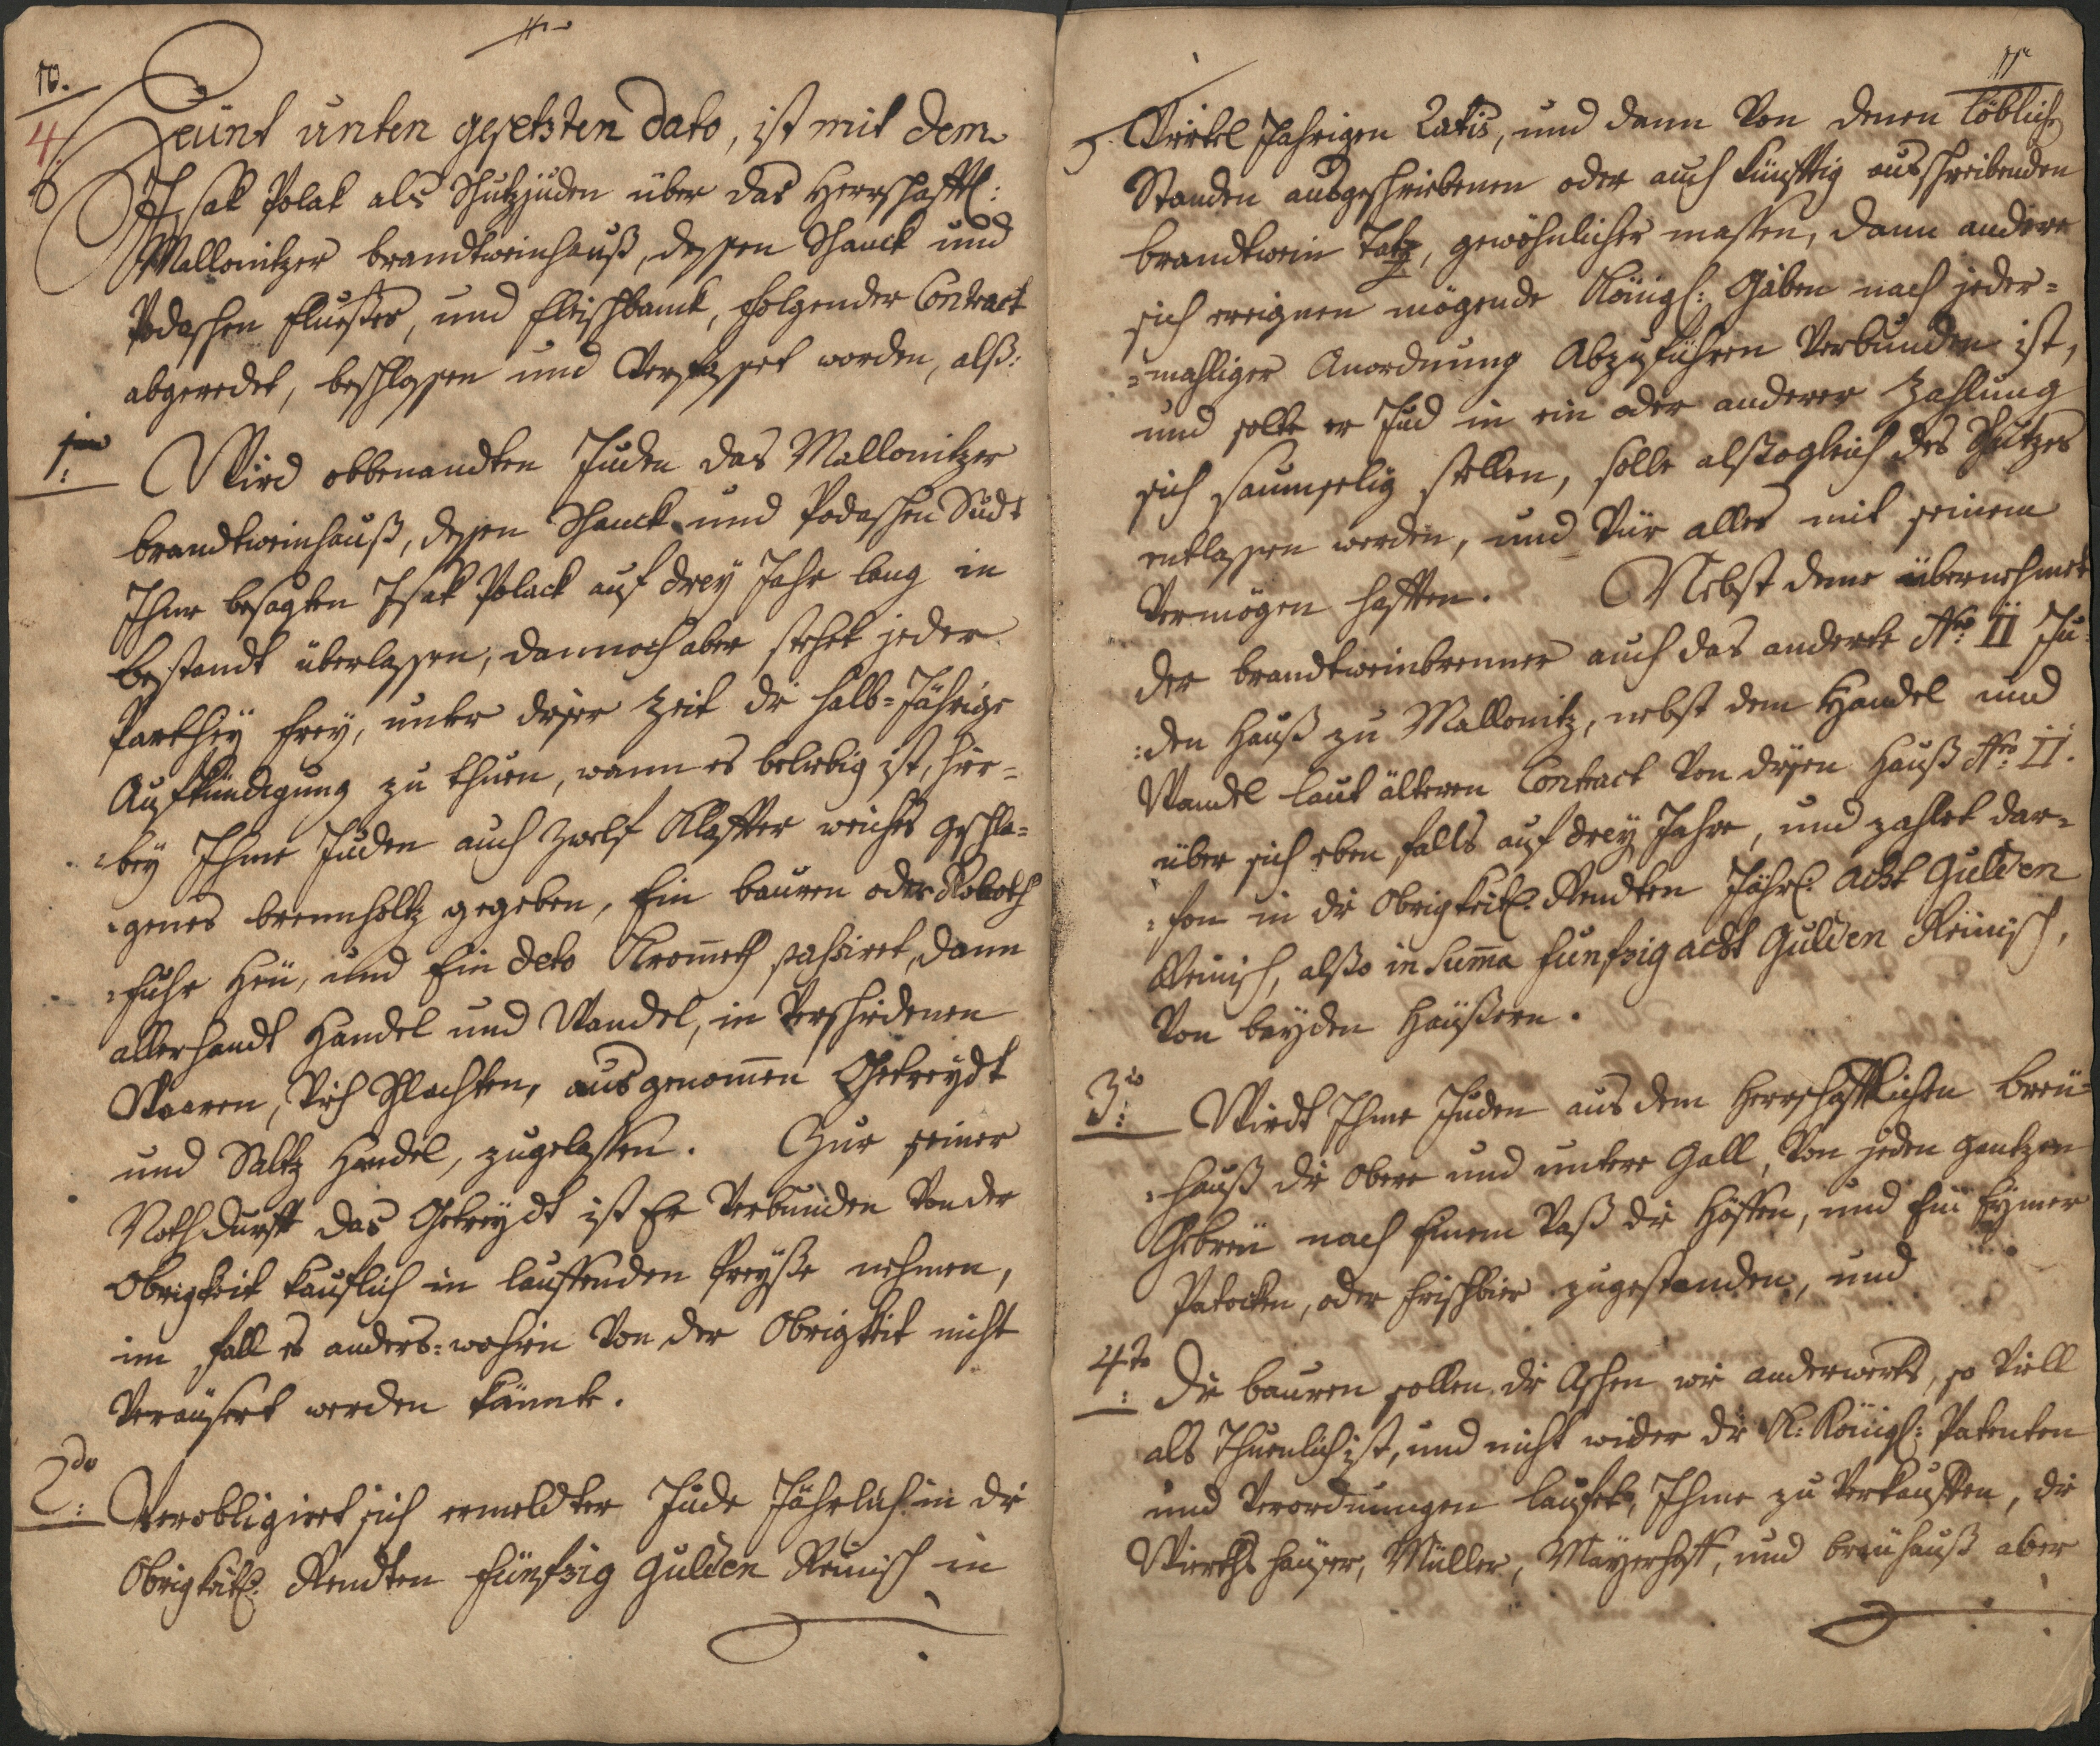 10.
4.
Heünt unten gesetzten Dato, ist mit dem
Isak Polak als Schutzjuden über das Herrschafftl:
Mallonitzer brandtweinhauß, dessen Schanck und
Podaschen Flusses, und Fleischbanck, folgender Contract
abgeredet, beschlossen und Verfasset worden, alß:
1mo: Wird obbenandten Juden das Mallonitzer
brandtweinhauß, dessen Schanck und Podaschen Sudt
Ihme besagten Isak Polack auf drey Jahr lang in
bestandt überlassen, dannoch aber stehet jeder
Parthey frey, unter dieser Zeit die halb-Jährige
Aufkündigung zu thuen, wann es beliebig ist, hier-
-bey Ihme Juden auch zwelf Klaffter weiches geschla-
-genes brennholtz gegeben, Ein bauren oder Roboth
-fuhr Heü, und Ein deto Krometh pahsiret, dann
allerhandt Handel und Wandel, in Verschiedenen
Waaren, Vieh Schlachten, ausgenomen Getreydt
und Saltz Handel, zugelassen. Zur seiner
Nothdurfft das Getreydt ist Er Verbunden Von der
Obrigkeit kaüflich in lauffenden Preyße nehmen,
im fall es anders-wohin Von der Obrigkeit nicht
Veraüsert werden könnte.
2do: Verobligiret sich ermeldter Jude Jährlich in die
Obrigkeitl. Rendten Fünfzig Gulden Reinisch in
11
Viertel Jahrigen Ratis, und dann Von denen löblich
Standen ausgeschriebenen oder auch künfftig ausschreibenden
brandtwein Tatz, gewöhnlicher massen, dann andere
sich ereignen mögende Königl: Gaben nach jeder-
-mahliger Anordnung Abzuführen Verbunden ist,
und solte er Jud in ein oder anderer Zahlung
sich saumselig stellen, solle alßogleich des Schutzes
entlassen werden, und Vür alles mit seinem
Vermögen hafften. Nebst deme übernehmet
der brandtweinbrenner auch das anderte Nro: II Ju-
-den Hauß zu Mallonitz, nebst dem Handel und
Wandel laut älteren Contract Von diesen Hauß Nro: II.
über sich eben falls auf drey Jahre, und zahlet dar-
-Von in die Obrigkeitl. Rendten Jährl. Acht Gulden
Reinisch, alßo in Suma Funfzig acht Gulden Reinisch,
Von beyden Haüßern.
3io: Wirdt Ihme Juden aus dem Herrschafftlichen breü-
-hauß die Obere und untere Gall, Von jeden gantzen
Gebreü nach Einem Vaß die Höffen, und Ein Eymer
Patocken, oder Frischbier zugestanden, und
4to: Die bauren sollen die Aschen wie anderwerts, so Viell
als Thuenlich ist, und nicht wider die K: Königl: Patenten
und Verordnungen laufet, Ihme zu Verkauffen, die
Wirths haüser, Müller, Mayerhoff, und breühauß aber